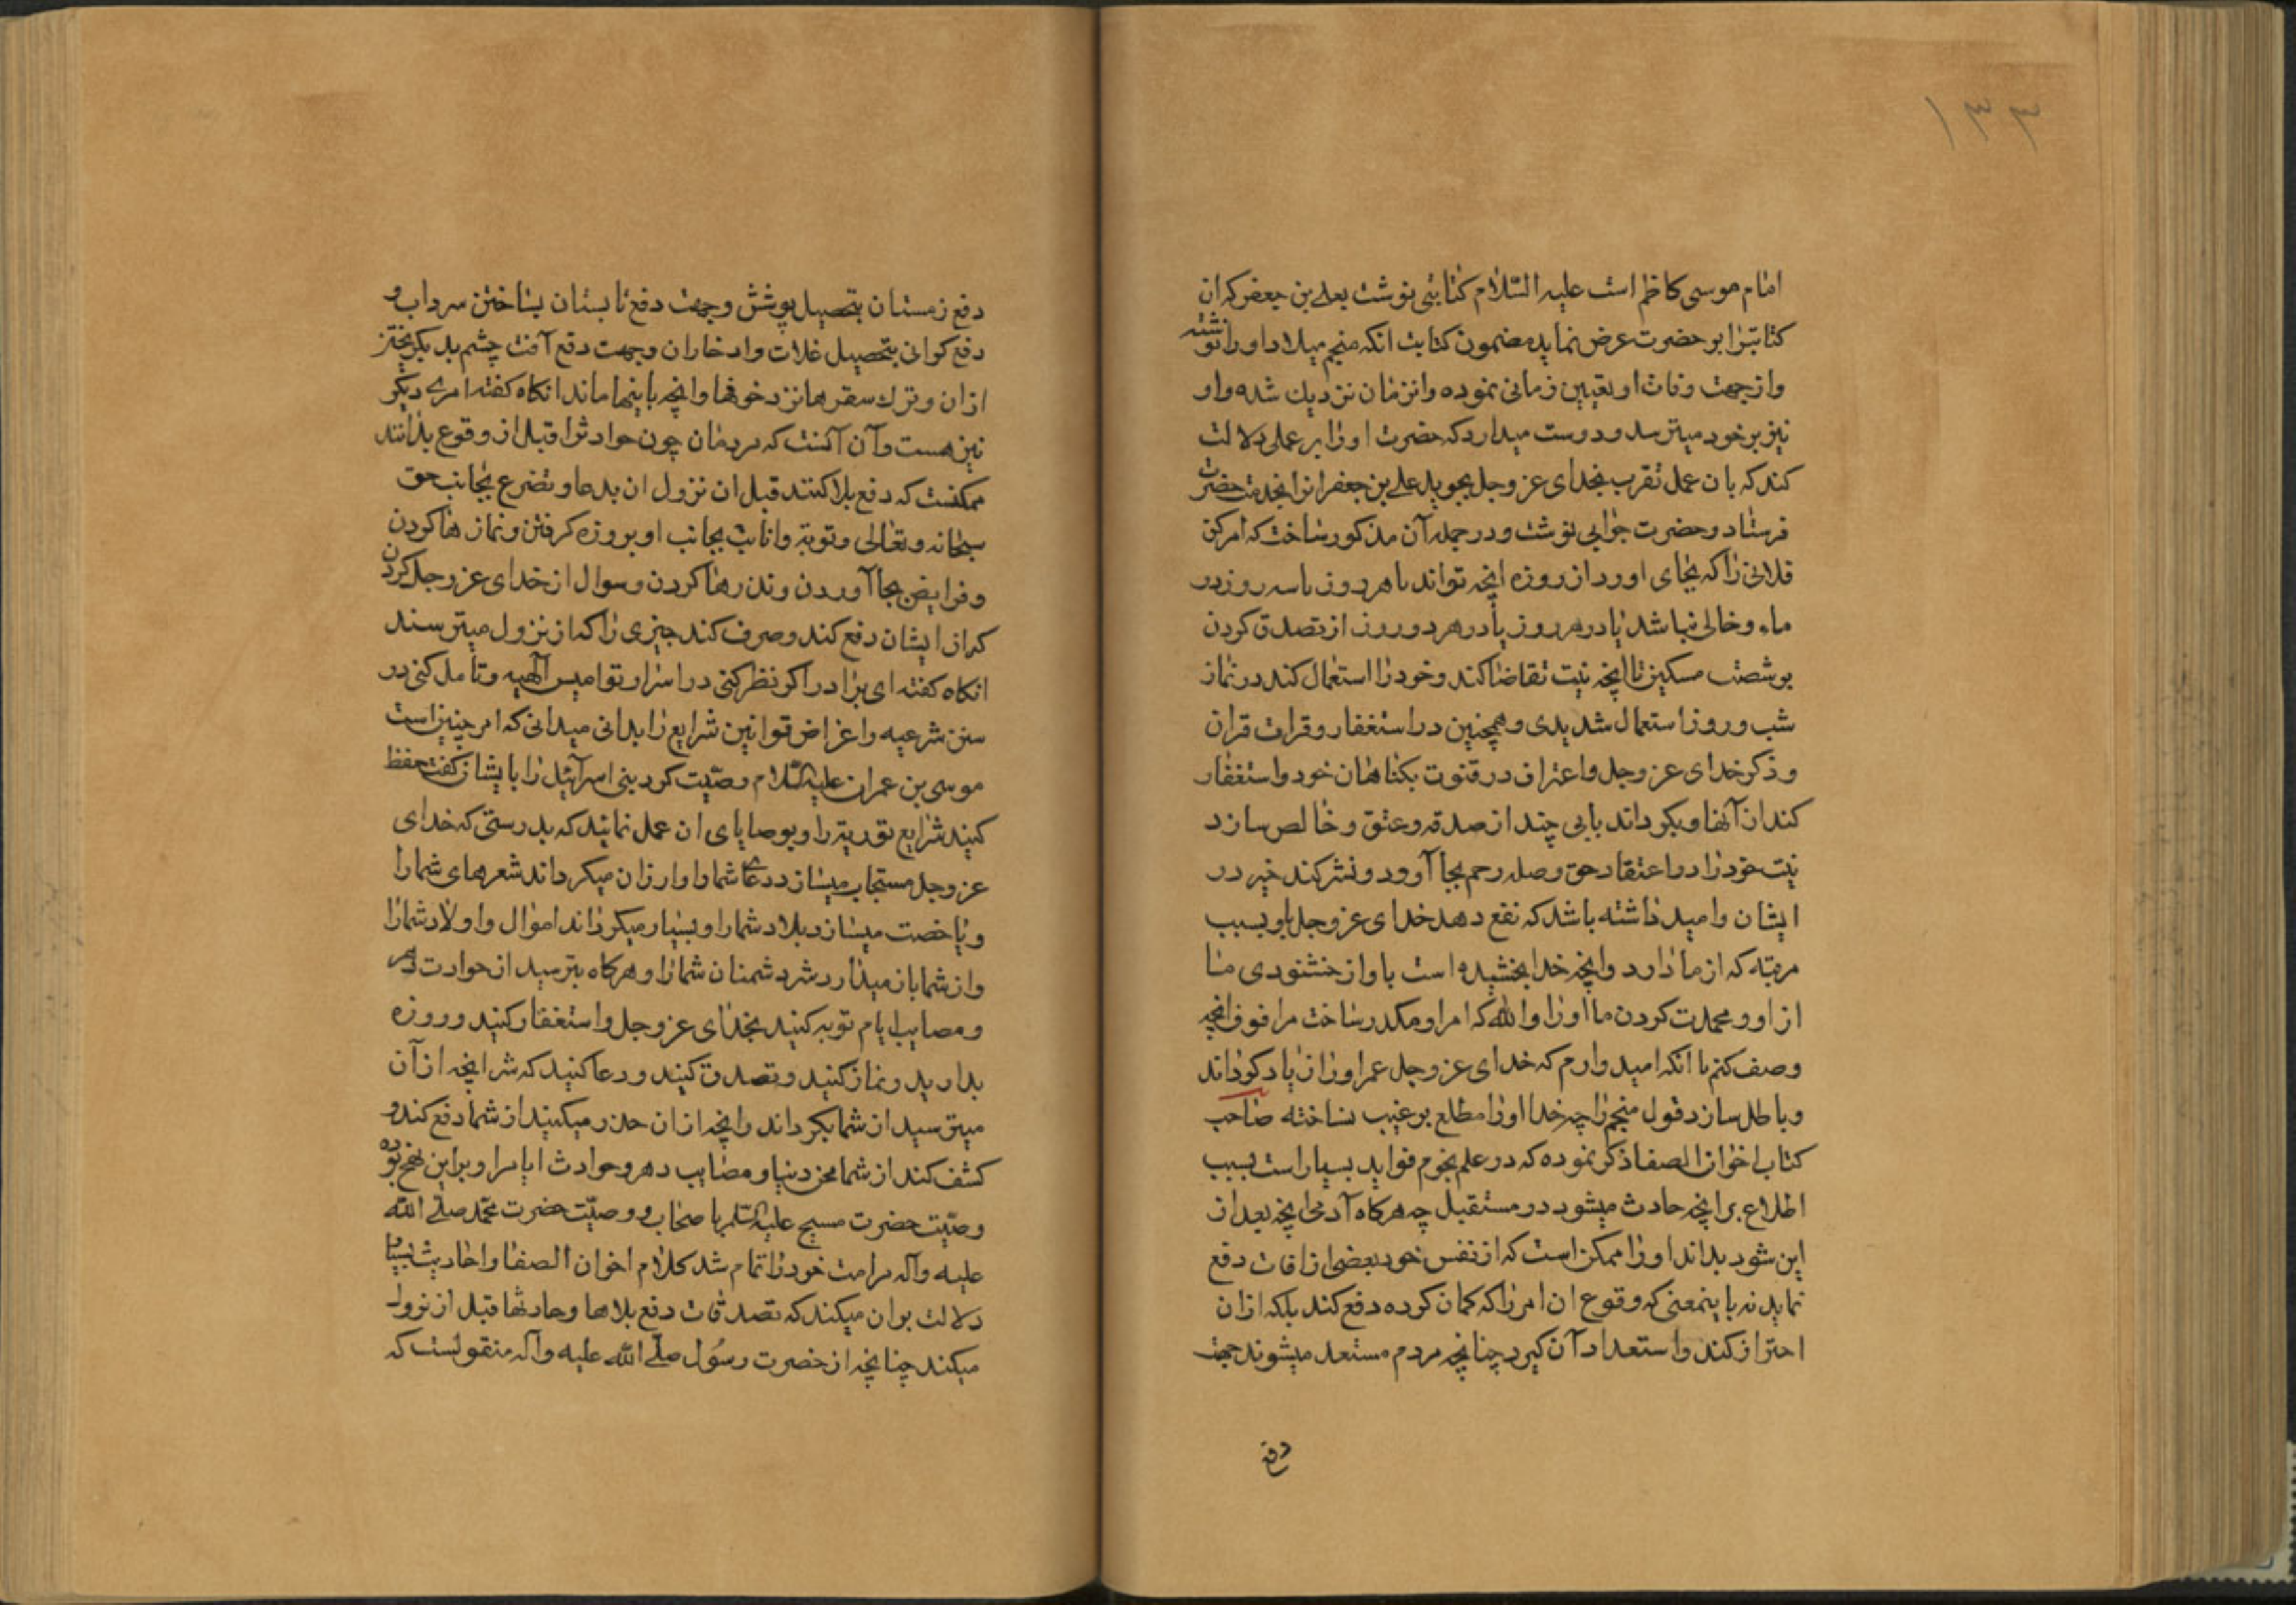 ۱۳۳
امام موسی کاظم است علیه السّلام کتابتی نوشت بعلی بن جعفر که ان
کتابترا بر حضرت عرض نماید مضمون کتابت انکه منجم میلاد او را نوشته
و از جهت وفات او تعیین زمانی نموده و انزمان نزدیك شده و او
نیز بر خود میترسد و دوست میدارد که حضرت او را بر عملی دلالت
کند که بان عمل تقرب بخدای عز و جل بجوید علی بن جعفر انرا بخدمت حضرت
فرستاد و حضرت جوابی نوشت و در جمله آن مذکور ساخت که امر کن
فلانی را که بجای اورد از روزه انچه تواند یا هر روز یا سه روز در
ماه و خالی نباشد یا در هر روز یا در هر دو روز از تصدق کردن
بر شصت مسکین تا انچه نیت تقاضا کند و خود را استعمال کند در نماز
شب و روز استعمال شدیدی و همچنین در استغفار و قرات قران
و ذکر خدای عز و جل و اعتراف در قنوت بکناهان خود و استغفار
کند از آنها و بکرداند بابی چند از صدقه و عتق و خالص سازد
نیت خود را در اعتقاد حق و صله رحم بجا آورد و نشر کند خیر در
ایشان و امید داشته باشد که نفع دهد خدای عز و جل باو بسبب
مرتبه که از ما دارد و انچه خدا بخشیده است باو از خشنودی ما
از او و محمدت کردن ما او را و الله که امر او مکدر ساخت مرا فوق انچه
وصف کنم با انکه امید وارم که خدای عز و جل عمر او را زیاد کرداند
و باطل سازد قول منجم را چه خدا او را مطلع بر غیب نساخته صاحب
کتاب اخوان الصفا ذکر نموده که در علم نجوم فواید بسیار است بسبب
اطلاع بر انچه حادث میشود در مستقبل چه هرکاه آدمی انچه بعد از
این شود بداند او را ممکن است که از نفس خود بعضی از افات دفع
نماید نه باینمعنی که وقوع ان امر را که کمان کرده دفع کند بلکه از ان
احتراز کند و استعداد آن کیرد چنانچه مردم مستعد میشوند جهت
دفع
دفع زمستان بتحصیل پوشش و جهت دفع تابستان بساختن سرداب و
دفع کرانی بتحصیل غلات و ادخار ان و جهت دفع آفت چشم بد بکریختن
از ان و ترك سفرها نزد خوفها و انچه باینها ماند انکاه کفته امری دیکر
نیز هست و آن آنست که مردمان چون حوادث را قبل از وقوع بدانند
ممکنست که دفع بلا کنند قبل از نزول ان بدعا و تضرع بجانب حق
سبحانه و تعالی و توبه و انابت بجانب او بروزه کرفتن و نمازها کردن
و فرایض بجا آوردن و نذرها کردن و سوال از خدای عز و جل کردن
که از ایشان دفع کند و صرف کند چیزی را که از نزول میترسند
انکاه کفته ای برادر اکر نظر کنی در اسرار نوامیس آلهیه و تامل کنی در
سنن شرعیه و اغراض قوانین شرایع را بدانی میدانی که امر چنین است
موسی بن عمران علیه السّلام وصیّت کرد بنی اسرآئیل را بایشان کفت حفظ
کنید شرایع توریة را و بوصایای ان عمل نمایید که بدرستی که خدای
عز و جل مستجاب میسازد دعای شما را و ارزان میکرداند شعرهای شما را
و باخصت میسازد بلاد شما را و بسیار میکرداند اموال و اولاد شما را
و از شما باز میدارد شر دشمنان شما را و هرکاه بترسید از حوادث دهر
و مصایب ایام توبه کنید بخدای عز و جل و استغفار کنید و روزه
بدارید و نماز کنید و تصدق کنید و دعا کنید که شر انچه از آن
میترسید از شما بکرداند و انچه از ان حذر میکنید از شما دفع کند و
کشف کند از شما محن دنیا و مصایب دهر و حوادث ایام را و براین نهج بوده
وصیّت حضرت مسیح علیه السّلم باصحاب و وصیّت حضرت محمّد صلّی الله
علیه وآله مرامت خود را تمام شد کلام اخوان الصفا و احادیث بسیار
دلالت بران میکند که تصدقات دفع بلاها و حادثها قبل از نزول
میکند چنانچه از حضرت رسول صلّی الله علیه وآله منقولست که